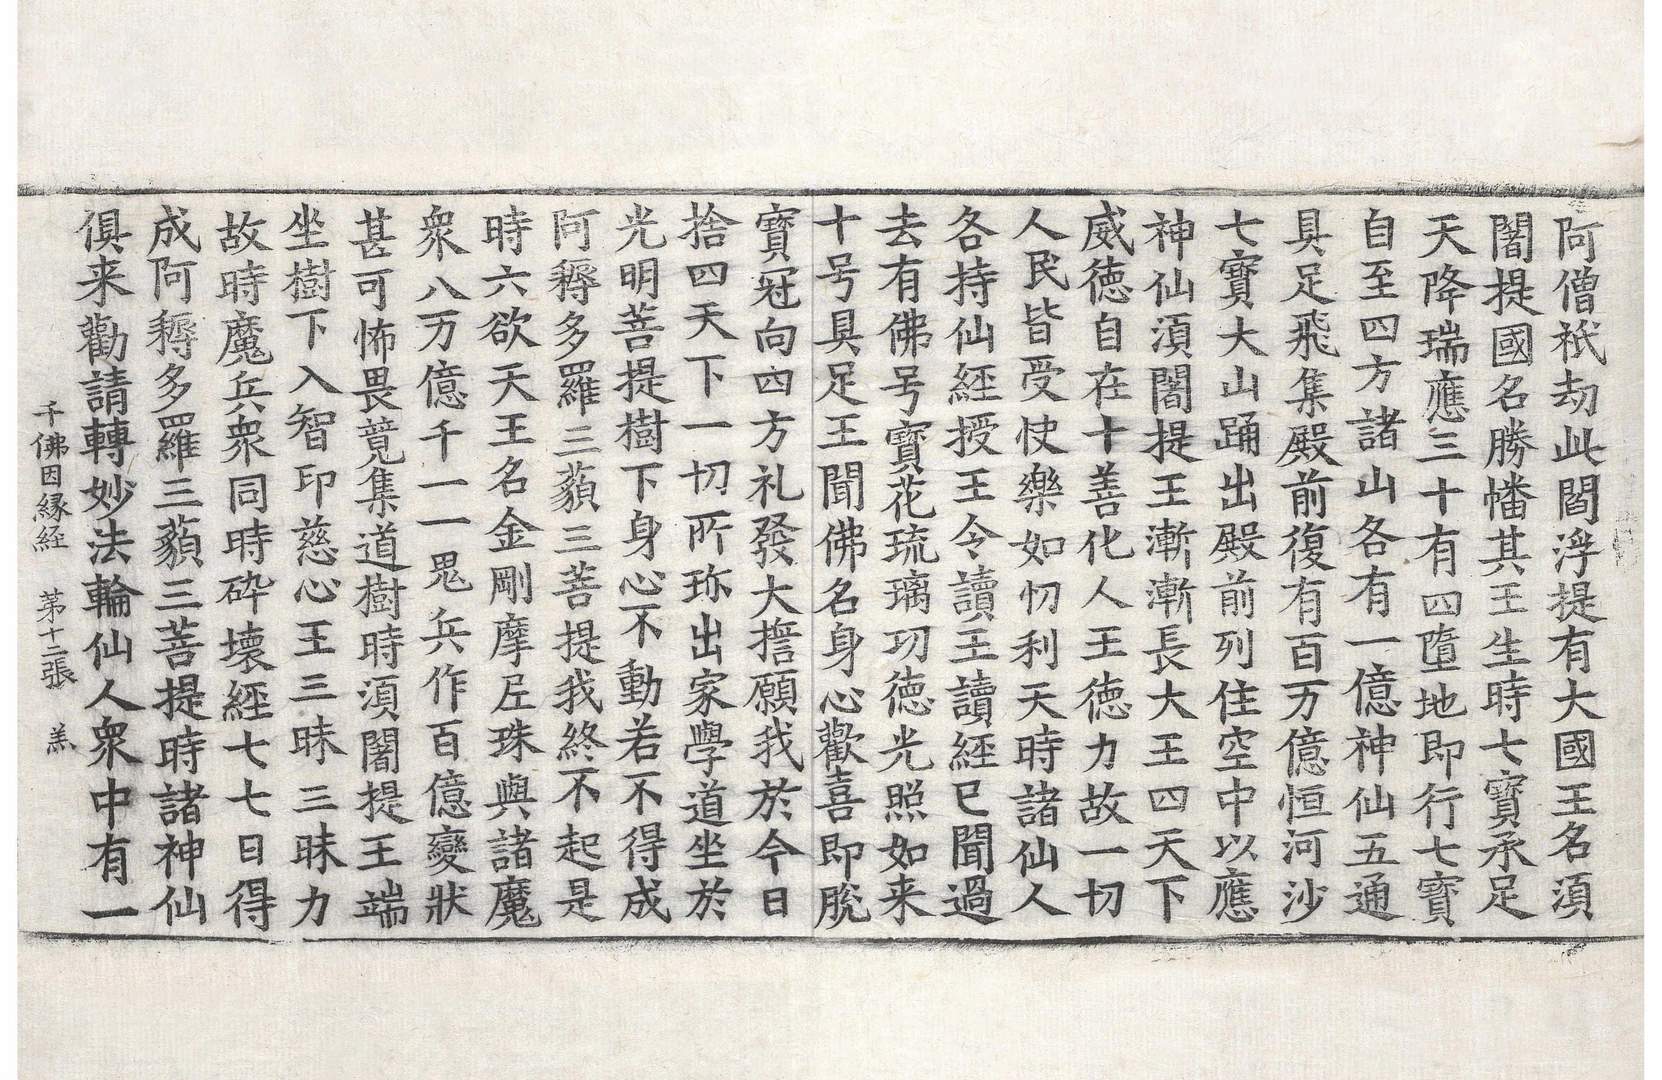 阿僧祇劫此閻浮提有大國王名須
闍提國名勝幡其王生時七寶承足
天降瑞應三十有四墮地即行七寶
自至四方諸山各有一億神仙五通
具足飛集殿前復有百万億恒河沙
七寶大山踊出殿前列住空中以應
神仙須闍提王漸漸長大王四天下
威德自在十善化人王德力故一切
人民皆受快樂如忉利天時諸仙人
各持仙經授王令讀王讀經已聞過
去有佛号寶花琉璃功德光照如来
十号具足王聞佛名身心歡喜即脫
寶冠向四方礼發大擔願我於今日
捨四天下一切所珎出家學道坐於
光明菩提樹下身心不動若不得成
阿耨多羅三藐三菩提我終不起是
時六欲天王名金剛摩尼珠與諸魔
衆八万億千一一鬼兵作百億變狀
甚可怖畏競集道樹時須闍提王端
坐樹下入智印慈心王三昧三昧力
故時魔兵衆同時碎壞經七七日得
成阿耨多羅三藐三菩提時諸神仙
俱来勸請轉妙法輪仙人衆中有一
千佛因緣経 第十二張 羔